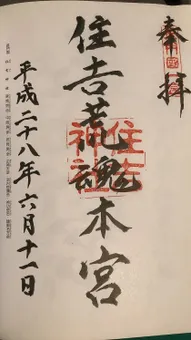 奉拝
住吉荒魂本宮
住吉神社
平成二十八年六月十一日